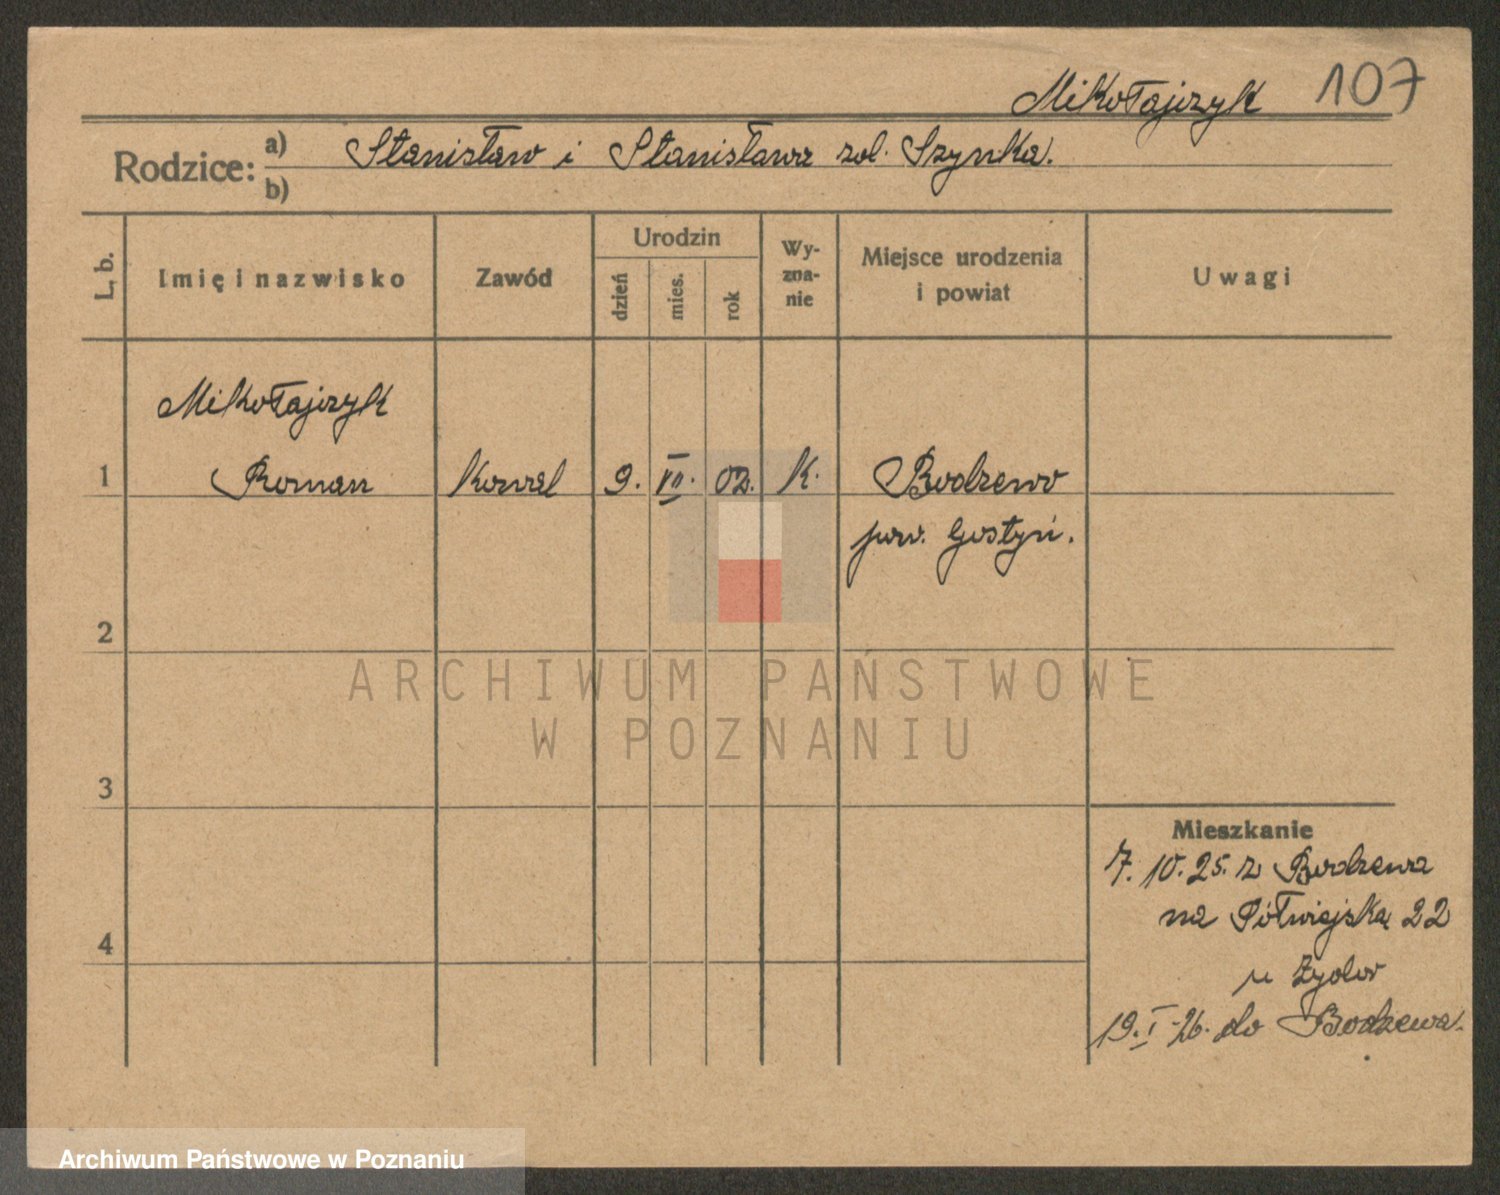 Mikołajczyk 107
Rodzice: a) Stanisław i Stanisława zd. Szynka.
b)
L. b. Imię i nazwisko Zawód Urodzin dzień mies. rok Wy-zna-nie Miejsce urodzenia i powiat Uwagi
Mikołajczyk
1 Roman kowal 9. VII. 02. k. Bodzewo
pow. Gostyń.
2
ARCHIWUM PAŃSTWOWE
W POZNANIU
3
Mieszkanie
7. 10. 25. z Bodzewa
na Półwiejską 22
4
u
19. I -26. do Bodzewa.
Archiwum Państwowe w Poznaniu